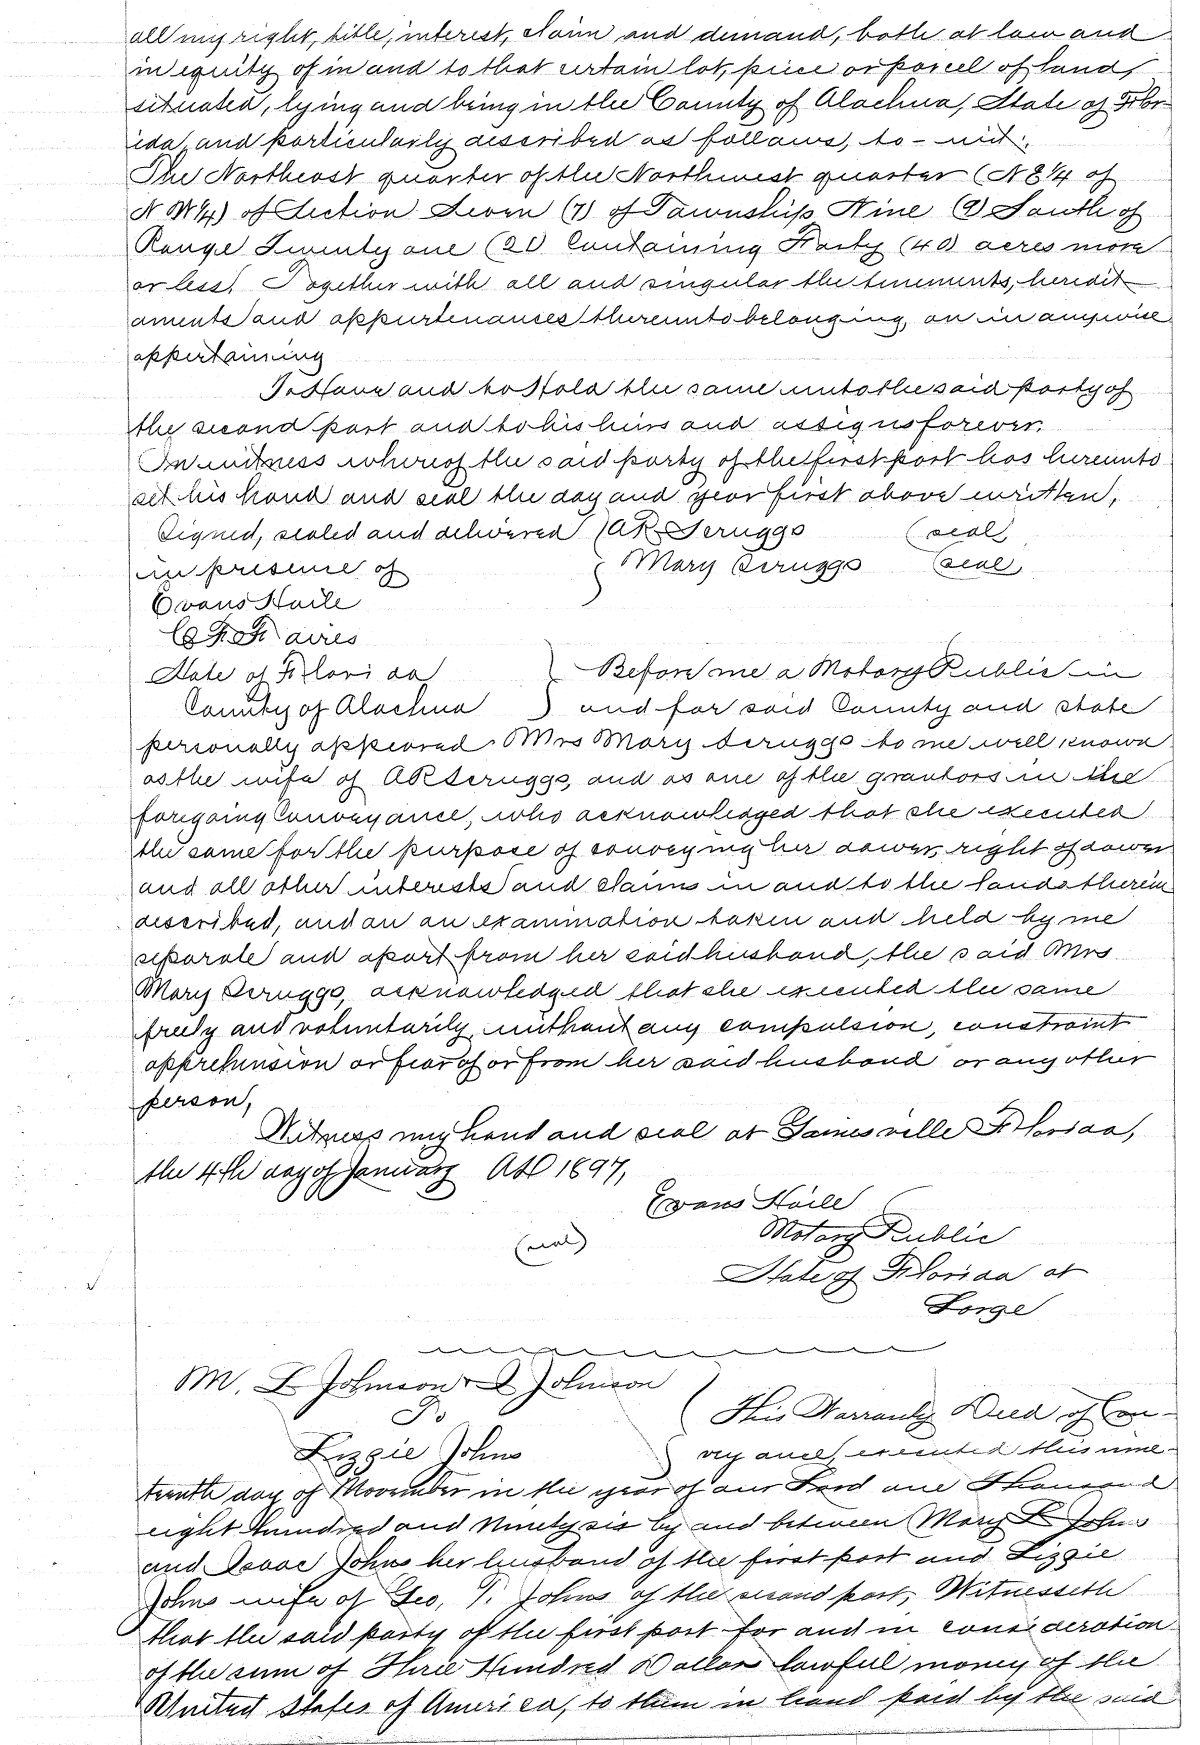 all my right, title, interest, claim and demand, both at law and
in equity of in and to that certain lot, piece or parcel of land,
situated, lying and being in the County of Alachua, State of Flor-
ida, and particularly described as follows, to-wit;
The Northeast quarter of the Northwest quarter (N E 1/4 of
N W 1/4) of Section Seven (7) of Township Nine (9) South of
Range Twenty one (21) Containing Forty (40) acres more
or less, Together with all and singular the tenements, heredit
aments and appurtenances thereunto belonging, on in anywise
appertaining
To Have and to Hold the same unto the said party of
the second part and to his heirs and assigns forever.
In witness whereof the said party of the first part has hereunto
set his hand and seal the day and year first above written,
Signed, sealed and delivered ( A R Scruggs (seal)
in presence of Mary Scruggs (seal)
Evans Haile
State of Florida ) Before me a Notary Public in
County of Alachua ) and for said County and state
personally appeared Mrs Mary Scruggs to me well known
as the wife of A R Scruggs, and as one of the grantors in the
foregoing Conveyance, who acknowledged that she executed
the same for the purpose of conveying her dower, right of dower
and all other interests and claims in and to the lands therein
described, and on an examination taken and held by me
separate and apart from her said husband, the said Mrs
Mary Scruggs, acknowledged that she executed the same
freely and voluntarily without any compulsion, constraint
apprehension or fear of or from her said husband or any other
person,
Witness my hand and seal at Gainesville Florida,
the 4th day of January AD 1897,
Evans Haile
(seal) Notary Public
State of Florida at
Large
M. L Johnson & I Johnson
To ( This Warranty Deed of Con-
Lizzie Johns ) veyance, executed this nine-
teenth day of November in the year of our Lord one Thousand
eight hundred and Ninety six by and between Mary L Johns
and Isaac Johns her husband of the first part and Lizzie
Johns wife of Geo, T. Johns of the second part, Witnesseth
that the said party of the first part for and in consideration
of the sum of Three Hundred Dollars lawful money of the
United States of America, to them in hand paid by the said